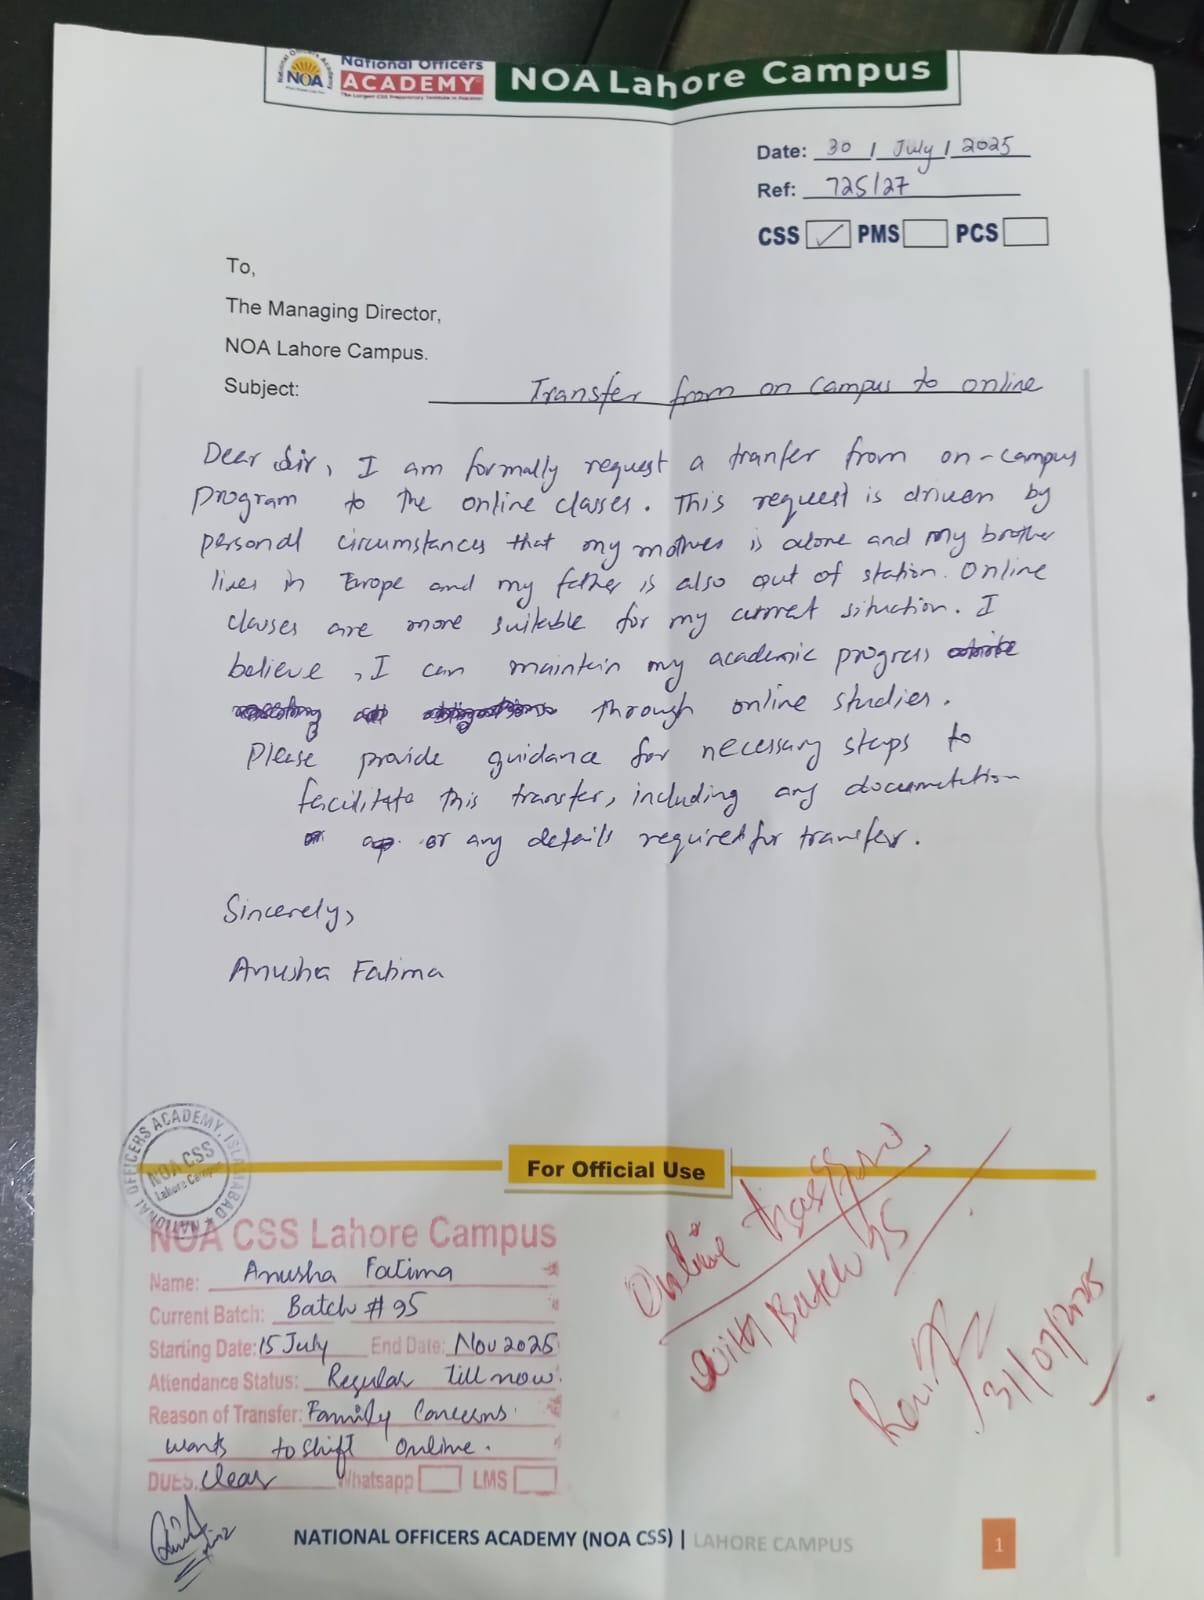 National Officers
NOA ACADEMY
NOA Lahore Campus
Date: 30 / July / 2025
Ref: 725/27
CSS ✓ PMS PCS
To,
The Managing Director,
NOA Lahore Campus.
Subject: Transfer from on campus to online
Dear Sir, I am formally request a tranfer from on-campus
program to the online classes. This request is driven by
personal circumstances that my mother is alone and my brother
lives in Europe and my father is also out of station. Online
classes are more suitable for my current situation. I
believe, I can maintain my academic progress
through online studies.
Please provide guidance for necessary steps to
facilitate this transfer, including any documetation
or any details required for transfer.
Sincerely,
Anusha Fatima
NATIONAL OFFICERS ACADEMY, ISLAMABAD
NOA CSS
Lahore Campus
For Official Use
NOA CSS Lahore Campus
Name: Anusha Fatima
Current Batch: Batch # 95
Starting Date: 15 July End Date: Nov 2025
Attendance Status: Regular till now.
Reason of Transfer: Family Concerns.
wants to shift online.
DUES. Clear Whatsapp LMS
Online
with Batch 95
31/07/2025
NATIONAL OFFICERS ACADEMY (NOA CSS) | LAHORE CAMPUS
1